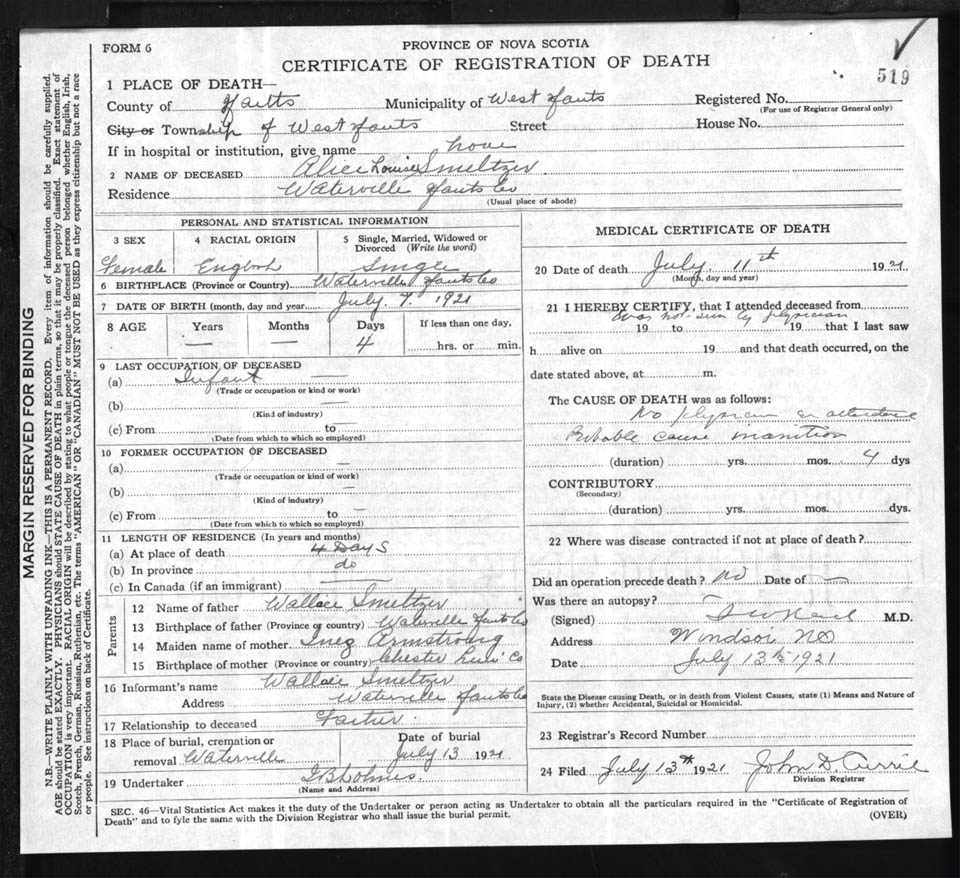 FORM 6
PROVINCE OF NOVA SCOTIA
CERTIFICATE OF REGISTRATION OF DEATH
519
1 PLACE OF DEATH—
County of Hants Municipality of West Hants Registered No.
(For use of Registrar General only)
City or Township of West Hants Street House No.
If in hospital or institution, give name home
2 NAME OF DECEASED Alice Louise Smeltzer
Residence Waterville Hants Co
(Usual place of abode)
PERSONAL AND STATISTICAL INFORMATION
3 SEX 4 RACIAL ORIGIN 5 Single, Married, Widowed or Divorced (Write the word)
Female English Single
6 BIRTHPLACE (Province or Country) Waterville Hants Co
7 DATE OF BIRTH (month, day and year) July. 7. 1921
8 AGE Years Months Days If less than one day,
— — 4 hrs. or min.
9 LAST OCCUPATION OF DECEASED
(a) Infant —
(Trade or occupation or kind or work)
(b) —
(Kind of industry)
(c) From to —
(Date from which to which so employed)
10 FORMER OCCUPATION OF DECEASED
(a) —
(Trade or occupation or kind of work)
(b) —
(Kind of industry)
(c) From to —
(Date from which to which so employed)
11 LENGTH OF RESIDENCE (In years and months)
(a) At place of death 4 Days
(b) In province do
(c) In Canada (if an immigrant) —
Parents
12 Name of father Wallace Smeltzer
13 Birthplace of father (Province or country) Waterville Hants Co
14 Maiden name of mother Inez Armstrong
15 Birthplace of mother (Province or country) Chester Lun. Co
16 Informant's name Wallace Smeltzer
Address Waterville Hants Co
17 Relationship to deceased Father
18 Place of burial, cremation or removal Waterville
Date of burial July 13 1921
19 Undertaker
(Name and Address)
MEDICAL CERTIFICATE OF DEATH
20 Date of death July. 11th 1921
(Month, day and year)
21 I HEREBY CERTIFY, that I attended deceased from
Was not seen by physician
19 to 19 that I last saw
h alive on 19 and that death occurred, on the
date stated above, at m.
The CAUSE OF DEATH was as follows:
No physician in attendance
Probable cause inanition
(duration) yrs. mos. 4 dys
CONTRIBUTORY
(Secondary)
(duration) yrs. mos. dys.
22 Where was disease contracted if not at place of death?
Did an operation precede death? no Date of —
Was there an autopsy?
(Signed) M.D.
Address Windsor NS
Date July 13th 1921
State the Disease causing Death, or in death from Violent Causes, state (1) Means and Nature of
Injury, (2) whether Accidental, Suicidal or Homicidal.
23 Registrar's Record Number
24 Filed July 13th 1921 John D. Currie
Division Registrar
SEC. 46—Vital Statistics Act makes it the duty of the Undertaker or person acting as Undertaker to obtain all the particulars required in the "Certificate of Registration of
Death" and to fyle the same with the Division Registrar who shall issue the burial permit.
(OVER)
MARGIN RESERVED FOR BINDING
N.B.—WRITE PLAINLY WITH UNFADING INK—THIS IS A PERMANENT RECORD. Every item of information should be carefully supplied.
AGE should be stated EXACTLY. PHYSICIANS should STATE CAUSE OF DEATH in plain terms, so that it may be properly classified. Exact statement of
OCCUPATION is very important. RACIAL ORIGIN will be described by stating to what people or tongue the deceased person belonged whether English, Irish,
Scotch, French, German, Russian, Ruthenian, etc. The terms "AMERICAN" OR "CANADIAN" MUST NOT BE USED as they express citizenship but not a race
or people. See instructions on back of Certificate.